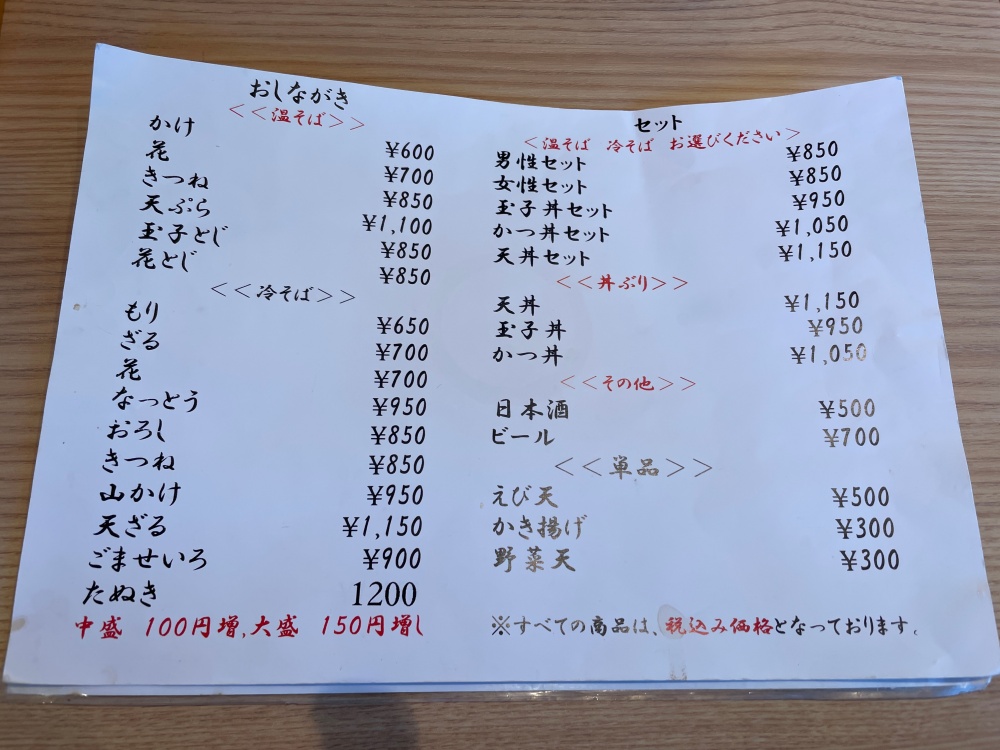 おしながき
<<温そば>>
かけ ¥600
花 ¥700
きつね ¥850
天ぷら ¥1,100
玉子とじ ¥850
花とじ ¥850
<<冷そば>>
もり ¥650
ざる ¥700
花 ¥700
なっとう ¥950
おろし ¥850
きつね ¥850
山かけ ¥950
天ざる ¥1,150
ごませいろ ¥900
たぬき 1200
中盛 100円増,大盛 150円増し
セット
<温そば 冷そば お選びください>
男性セット ¥850
女性セット ¥850
玉子丼セット ¥950
かつ丼セット ¥1,050
天丼セット ¥1,150
<<丼ぶり>>
天丼 ¥1,150
玉子丼 ¥950
かつ丼 ¥1,050
<<その他>>
日本酒 ¥500
ビール ¥700
<<単品>>
えび天 ¥500
かき揚げ ¥300
野菜天 ¥300
※すべての商品は、税込み価格となっております。